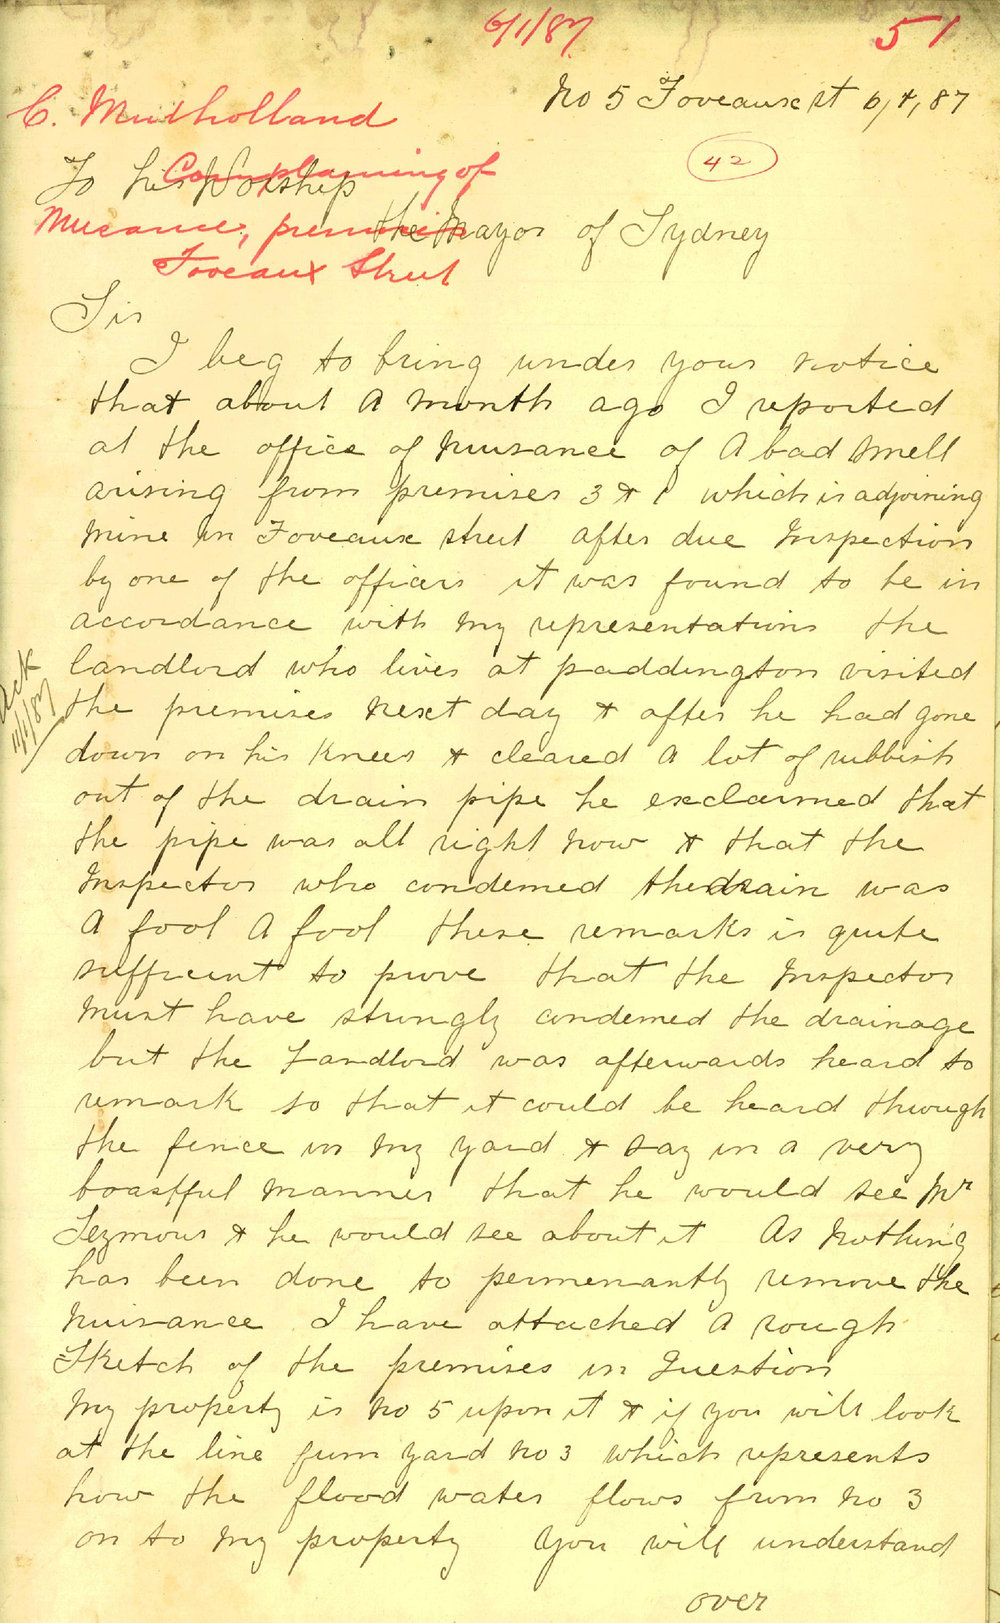 6/1/87
51
No 5 Foveaux st 6/1/87
C. Mulholland
42
Complaining of
To his Worship
Nuisance, premises
the Mayor of Sydney
Foveaux Street
Sir
I beg to bring under your notice
that about A Month ago I reported
at the office of Nuisance of A bad smell
arising from premises 3 & 1 which is adjoining
Mine in Foveaux street after due Inspection
by one of the officers it was found to be in
accordance with My representations the
landlord who lives at paddington visited
the premises Next day & after he had gone
down on his Knees & cleared A lot of rubbish
out of the drain pipe he exclaimed that
the pipe was all right Now & that the
Inspector who condemed the drain was
A fool A fool these remarks is quite
sufficient to prove that the Inspector
Must have strongly condemed the drainage
but the Landlord was afterwards heard to
remark so that it could be heard through
the fence in My yard & say in a very
boastful manner that he would see Mr
Seymour & he would see about it As Nothing
has been done to permenantly remove the
Nuisance I have attached A rough
Sketch of the premises in Question
My property is No 5 upon it & if you will look
at the line from yard No 3 which represents
how the flood water flows from No 3
on to My property You will understand
over
Ack
11/1/87